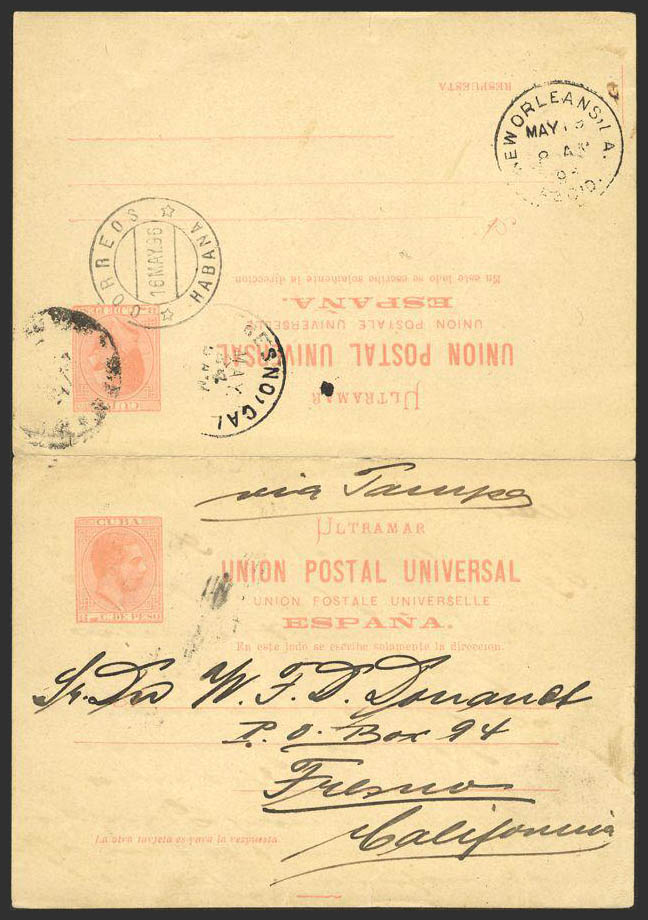 RESPUESTA
NEW ORLEANS, LA.
MAY
CORREOS
HABANA
16 MAY. 96
En este lado se escribe solamente la direccion
ESPAÑA.
UNION POSTALE UNIVERSELLE
UNION POSTAL UNIVERSAL
ULTRAMAR
CUBA
FRESNO, CAL
MAY
via Tampa
ULTRAMAR
UNION POSTAL UNIVERSAL
UNION POSTALE UNIVERSELLE
ESPAÑA.
En este lado se escribe solamente la direccion.
CUBA
C. DE PESO
Sr. Dn W. F. D.
P. O. Box 94
Fresno
California
La otra tarjeta es para la respuesta